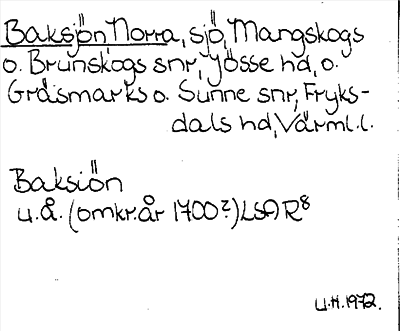 Baksjön Norra, sjö, Mangskogs
o. Brunskogs snr, Jösse hd, o.
Gräsmarks o. Sunne snr, Fryks-
dals hd, Värml. l.
Baksiön
u.å. (omkr. år 1700?) LSA R8
U.H. 1972.